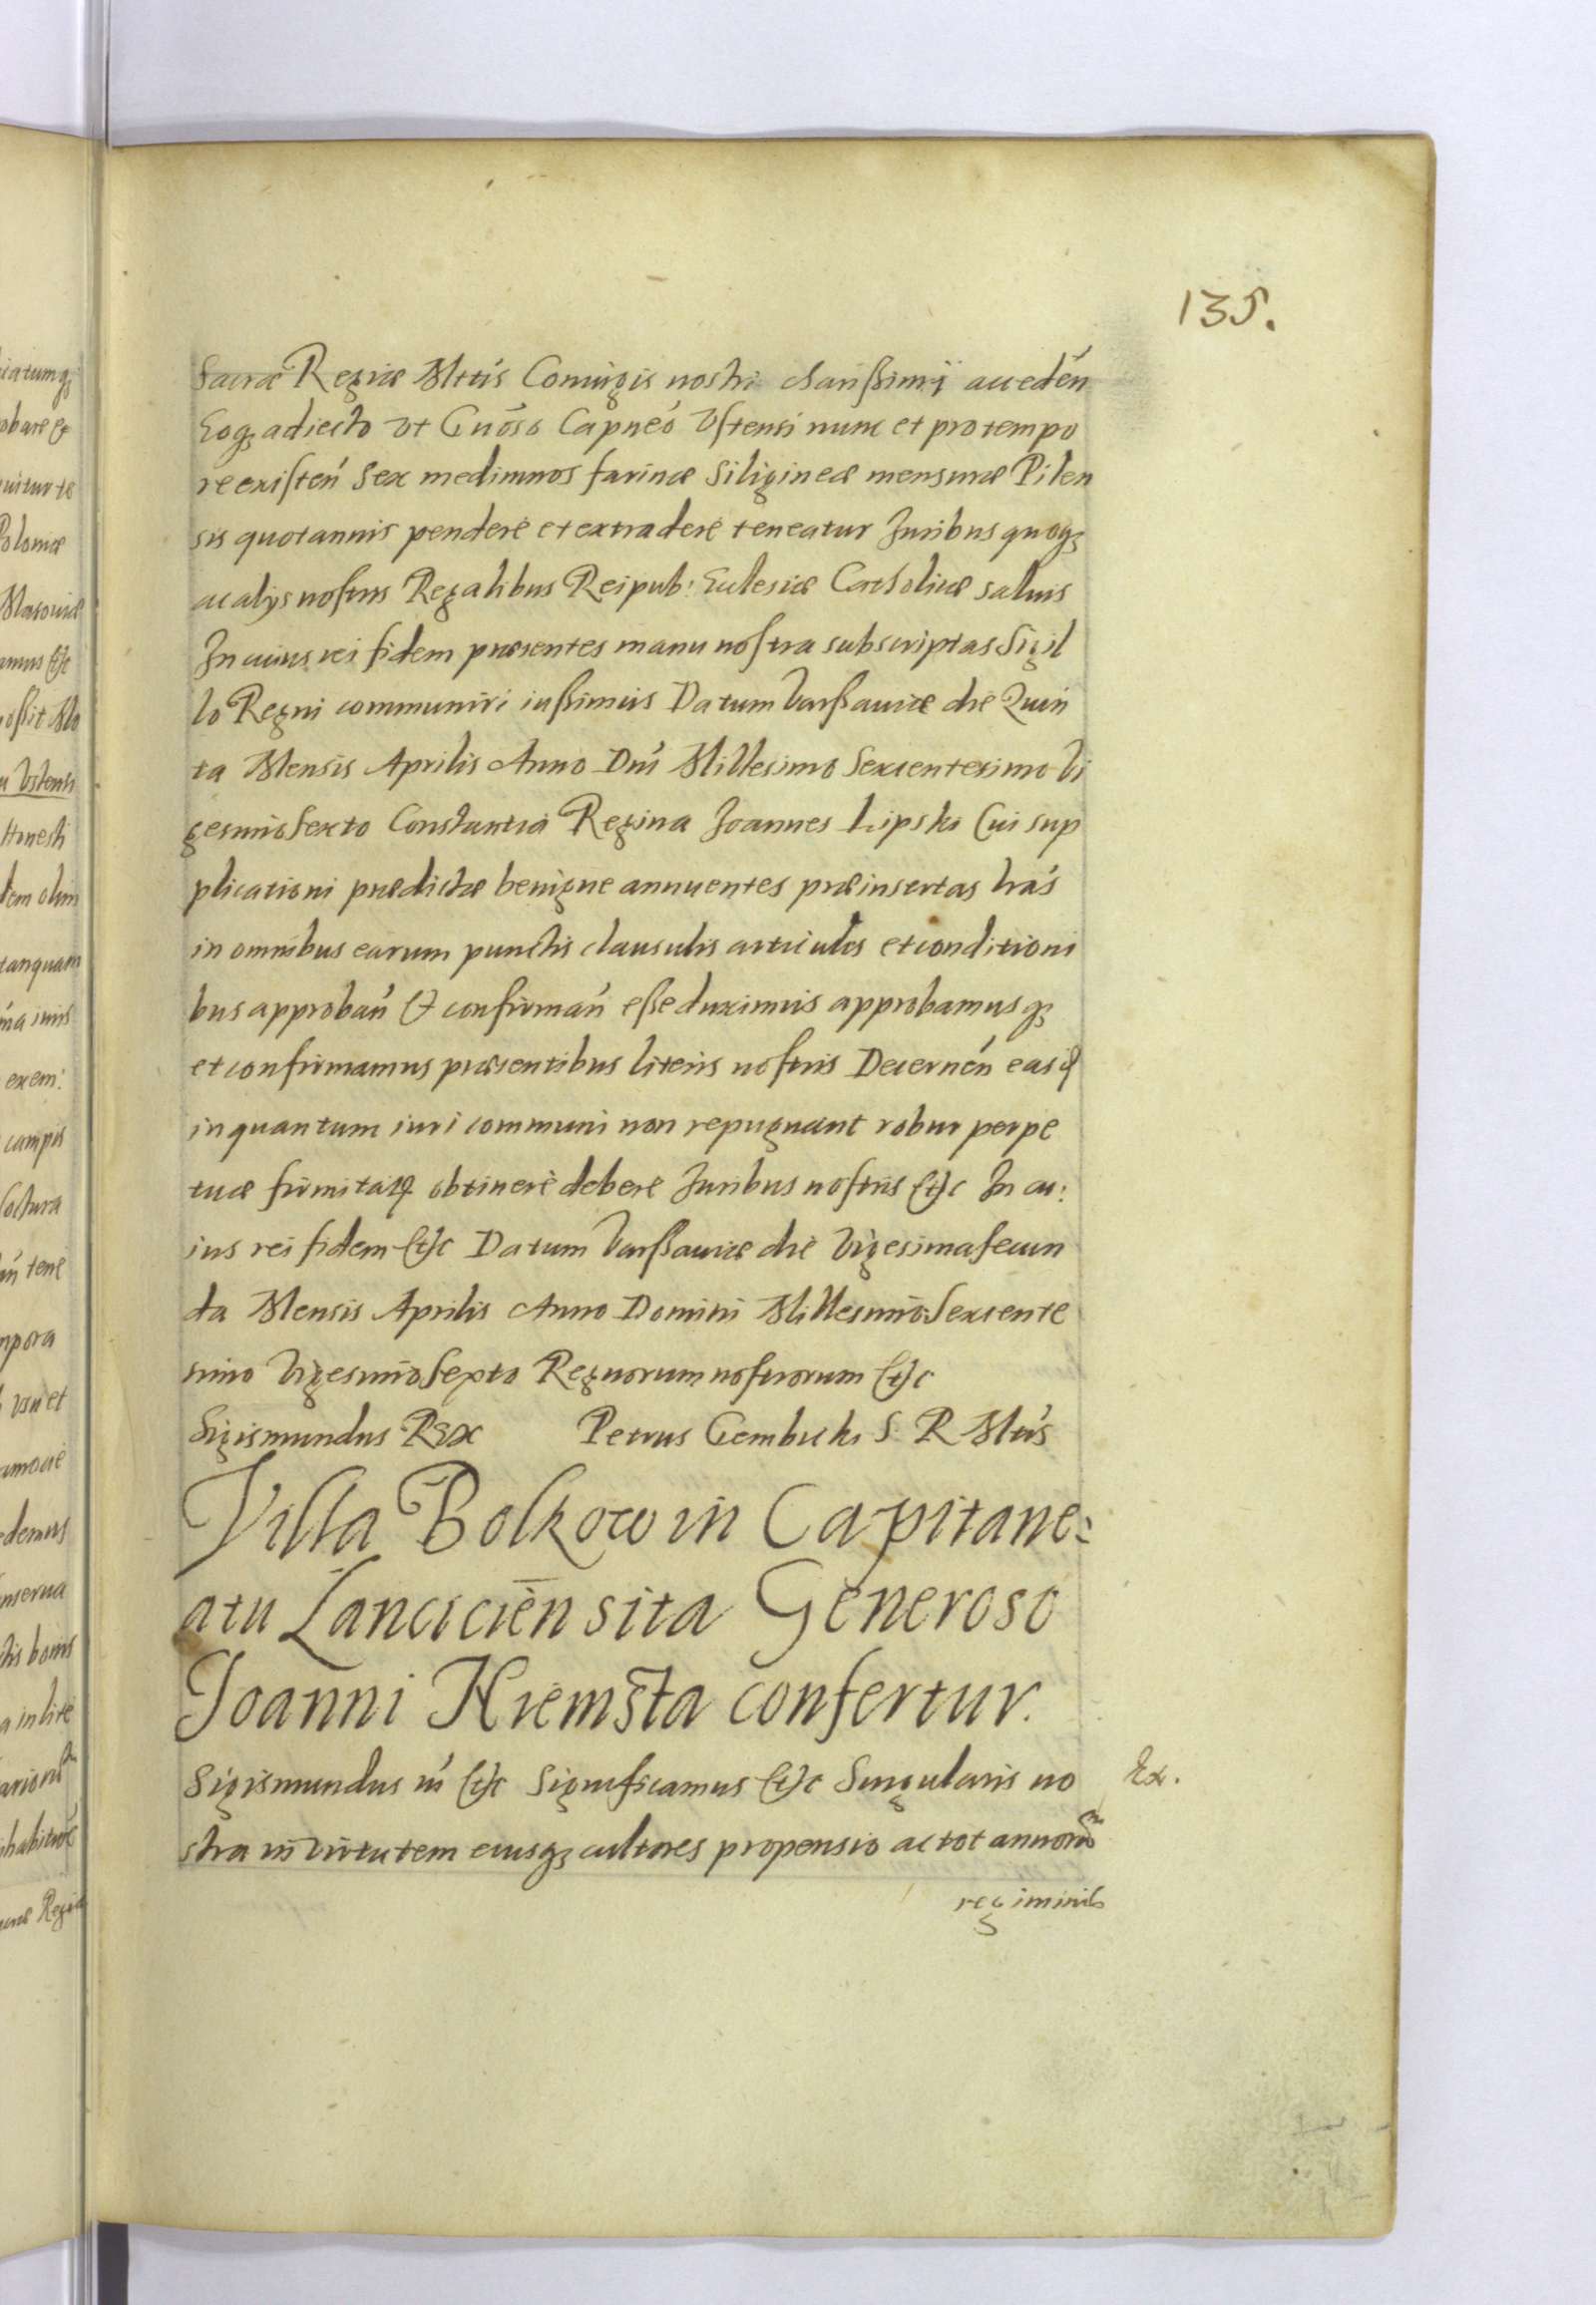 135.
Sacræ Regiæ Mttis Coniugis nostri charißimi acceden
Eoq3 adiecto vt Gnoso Capneo Vstensi nunc et pro tempo
re existen Sex medimnos farinæ Siligineæ mensuræ Pilen
sis quotannis pendere et extradere teneatur Juribus quoq3
ac alÿs nostris Regalibus Reipub: Ecclesiæ Catholicæ salvis
In cuius rei fidem præsentes manu nostra subscriptas Sigil
lo Regni communiri iußimus Datum Varßaviæ die Quin
ta Mensis Aprilis Anno Dni Millesimo Sexcentesimo Vi
gesimo Sexto Constantia Regina Joannes Lipski Cui sup
plicationi prædictæ benigne annuentes præinsertas lras
in omnibus earum punctis clausulis articulis et conditioni
bus approban & confirman eße duximus approbamusq3
et confirmamus præsentibus literis nostris Decernen easq
in quantum iuri communi non repugnant robur perpe
tuæ firmitatis obtinere debere Juribus nostris &c In cu:
ius rei fidem &c Datum Varßaviæ die Vigesima secun
da Mensis Aprilis Anno Domini Millesimo Sexcente
simo Vigesimo Sexto Regnorum nostrorum &c
Sigismundus Rex Petrus Gembicki S. R. Mtis
Villa Bolkow in Capitane:
atu Lancicien sita Generoso
Joanni Kiemsta confertur.
Sigismundus iii &c Significamus &c Singularis no
stra in virtutem eiusq3 cultores propensio ac tot annorum
Ex.
regiminis